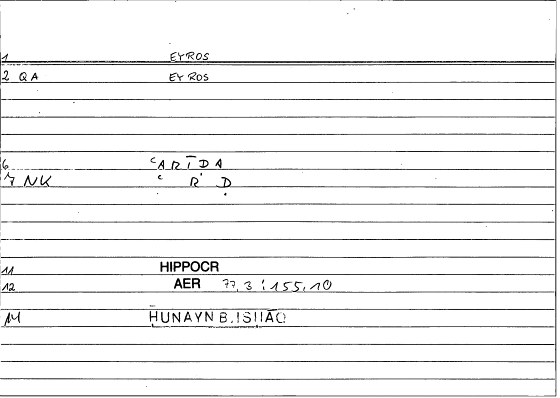 1 EYROS
2 QA EYROS
6 ʿARĪḌA
7 NK ʿ R Ḍ
11 HIPPOCR
12 AER 77,3 : 155,10
14 ḤUNAYN B. ISḤĀQ